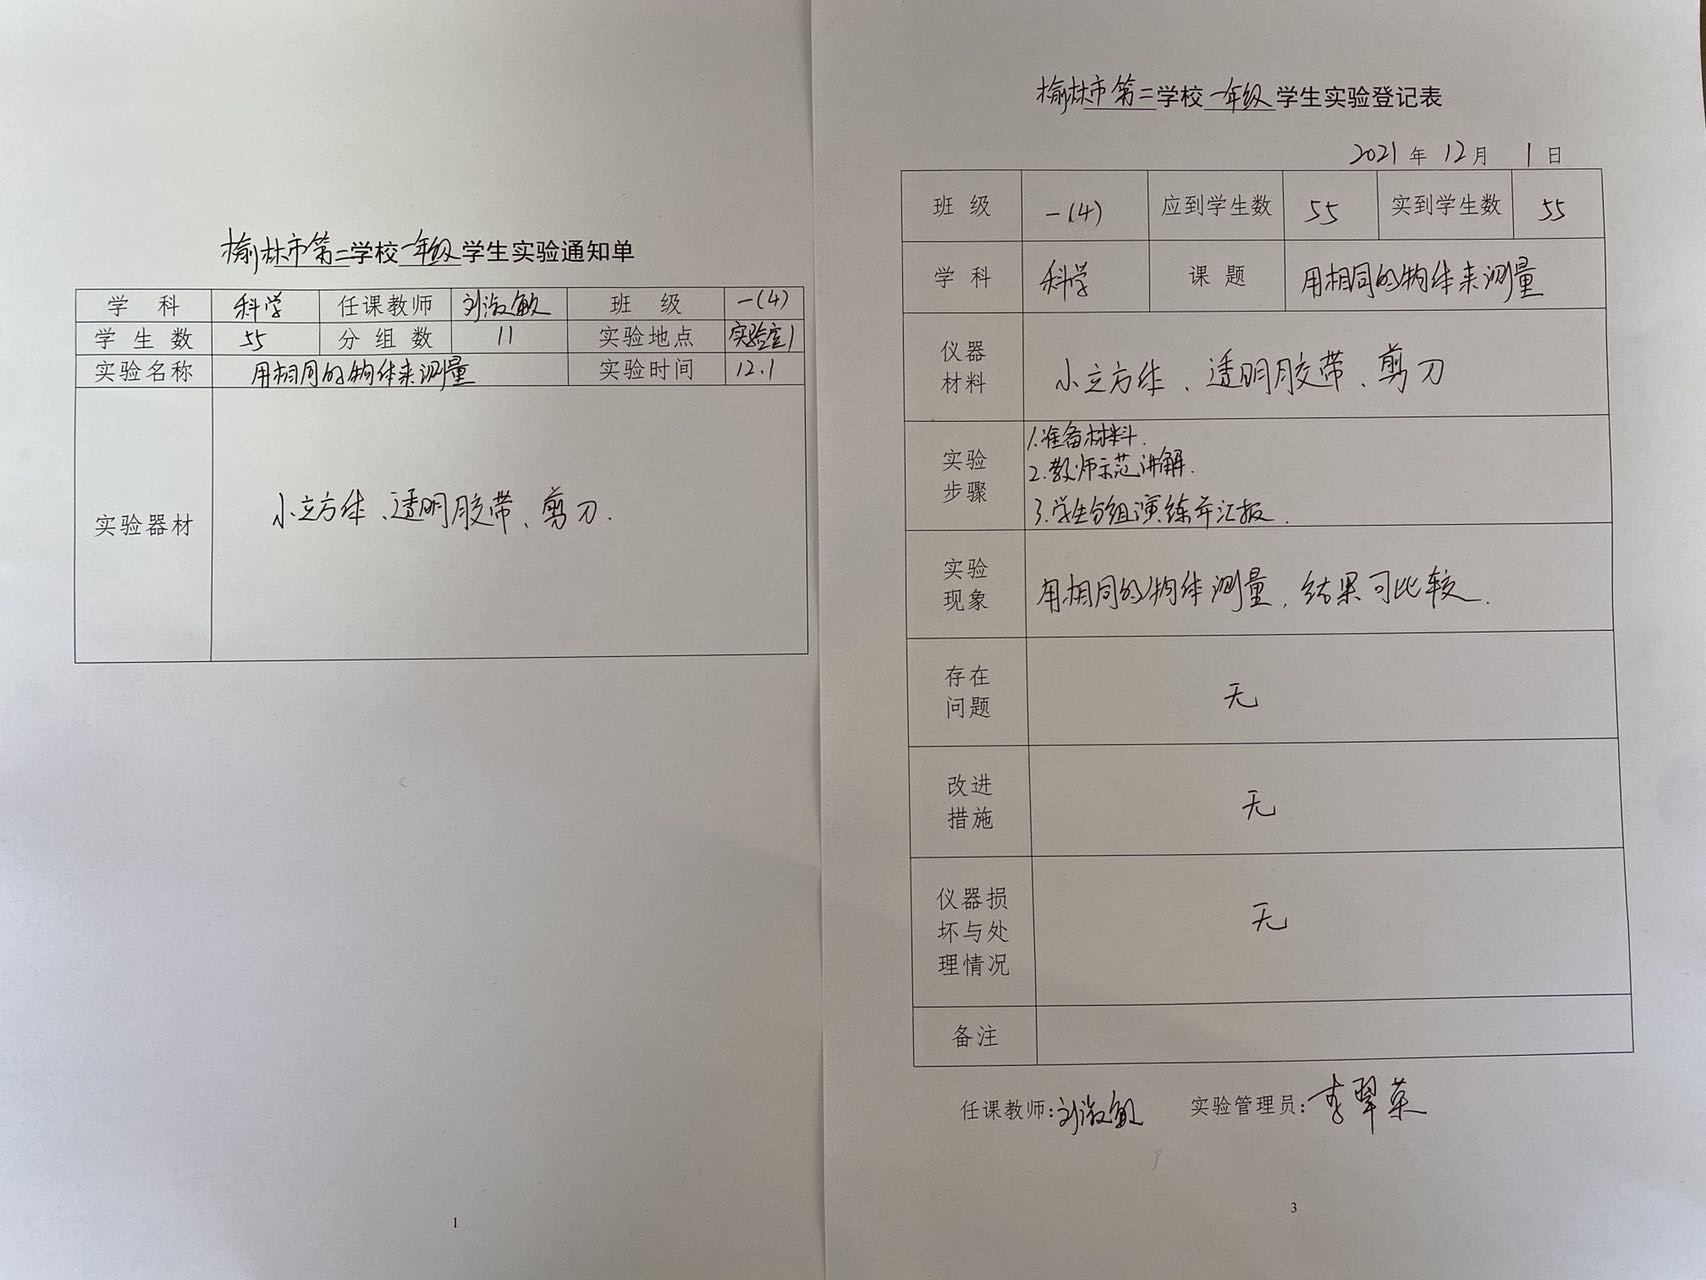 榆林市第二学校一年级学生实验通知单
学科 科学 任课教师 刘淑敏 班级 一(4)
学生数 55 分组数 11 实验地点 实验室1
实验名称 用相同的物体来测量 实验时间 12.1
实验器材 小立方体、透明胶带、剪刀.
1
榆林市第二学校一年级学生实验登记表
2021年12月1日
班级 一(4) 应到学生数 55 实到学生数 55
学科 科学 课题 用相同的物体来测量
仪器
材料
小立方体、透明胶带、剪刀
实验
步骤
1.准备材料.
2.教师示范讲解.
3.学生分组演练并汇报.
实验
现象
用相同的物体测量,结果可比较.
存在
问题
无
改进
措施
无
仪器损
坏与处
理情况
无
备注
任课教师:刘淑敏 实验管理员:李翠英
3